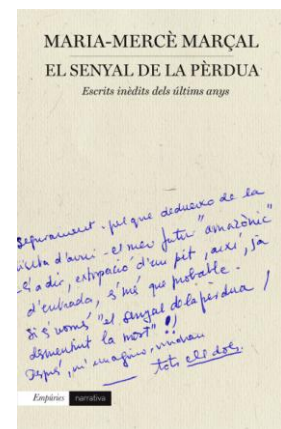 MARIA-MERCÈ MARÇAL
EL SENYAL DE LA PÈRDUA
Escrits inèdits dels últims anys
Segurament - pel que dedueixo de la
d'avui - el meu futur "amazònic"
és a dir, extirpació d'un pit, així, ja
d'entrada, és més que probable.
Si és només "el senyal de la pèrdua /
desmentint la mort"!!
Després, m'imagino, vindran
tots ells dos.
Empúries narrativa